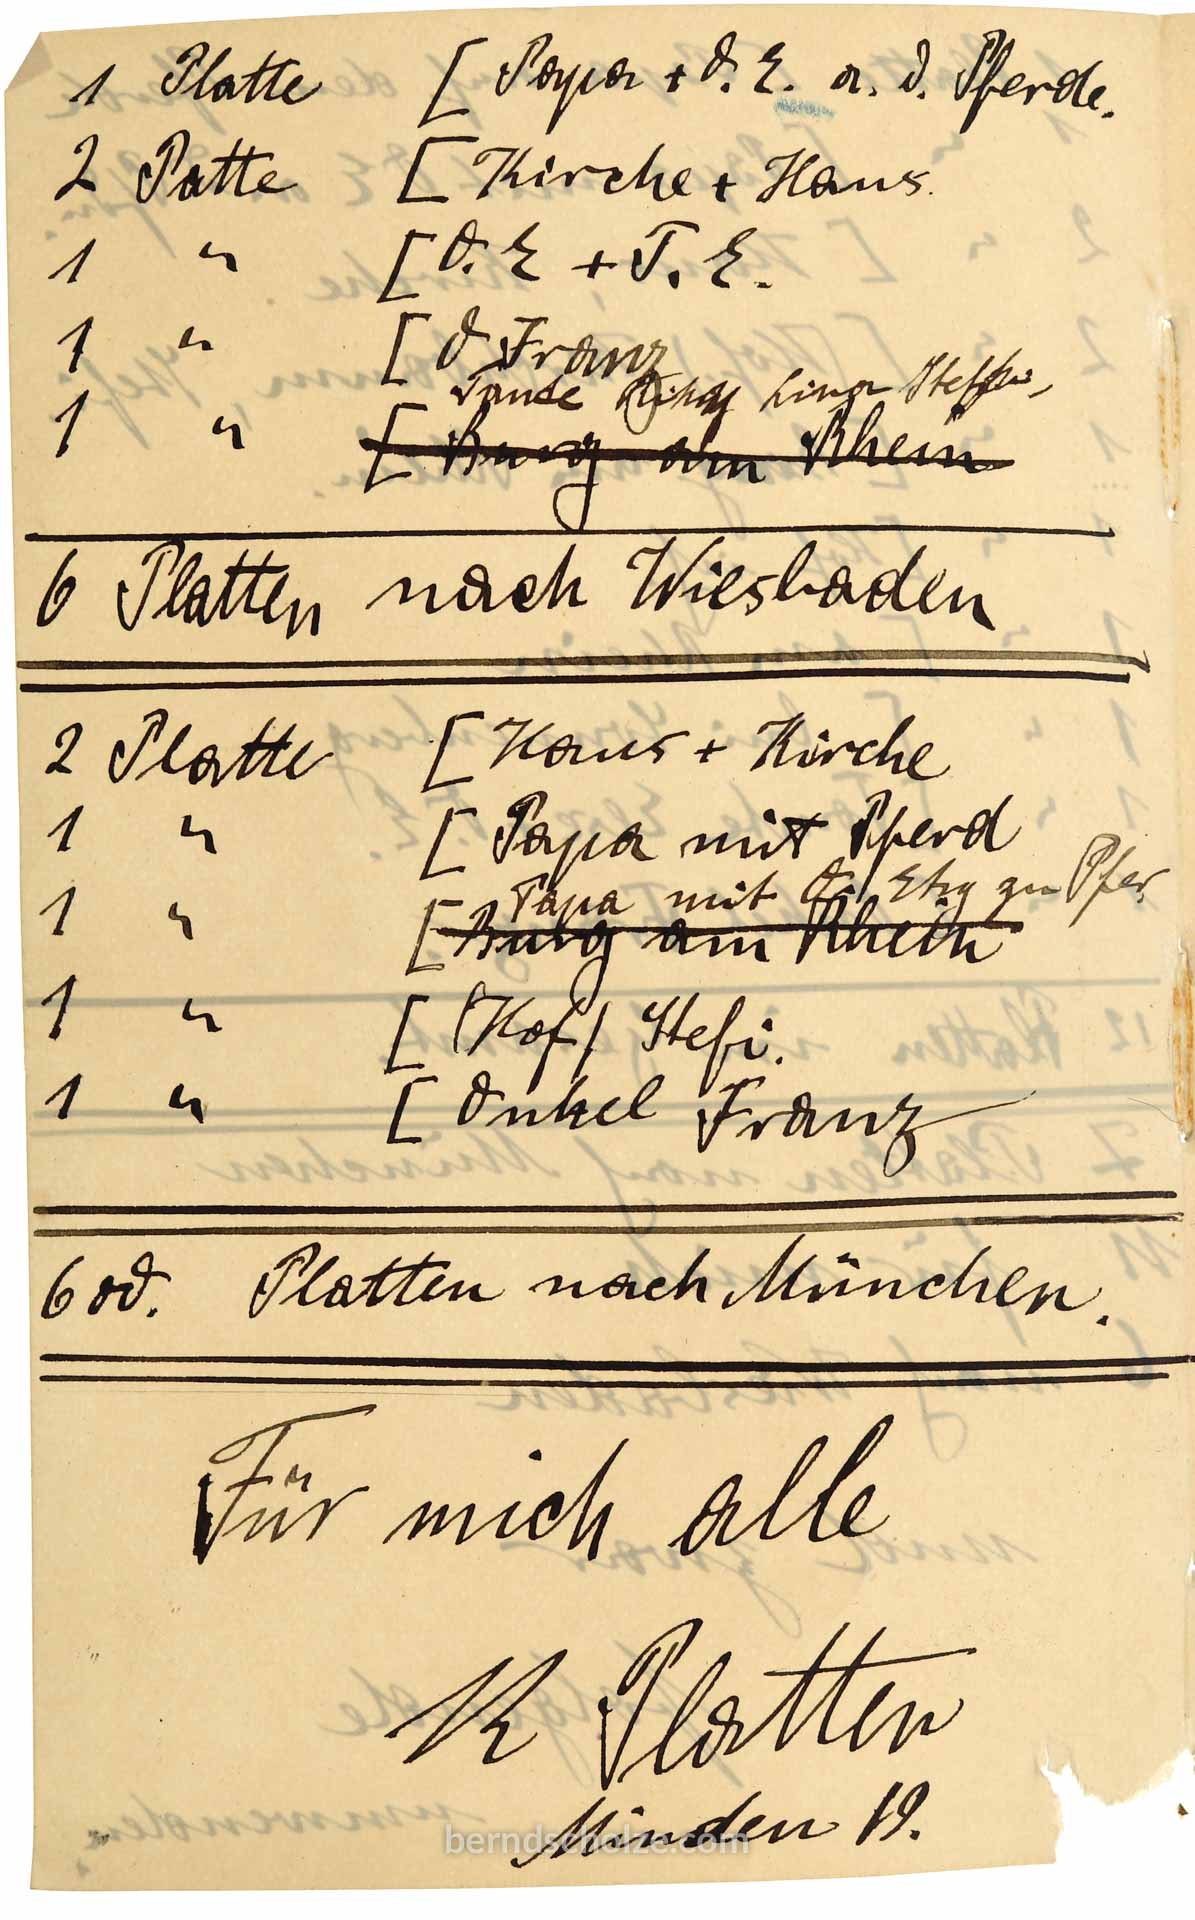 1 Platte [ Papa + O. E. a. d. Pferde.
2 Patte [ Kirche + Haus.
1 " [ O. E + T. E.
1 " [ O Franz
Tante Lina Steffi,
1 " [ Burg am Rhein
6 Platten nach Wiesbaden
2 Platte [ Haus + Kirche
1 " [ Papa mit Pferd
Papa mit O. zu Pfer
1 " [ Burg am Rhein
1 " [ (Hof) Stefi.
1 " [ Onkel Franz
6 od. Platten nach München.
Für mich alle
12 Platten
Minden 19.
berndscholze.com